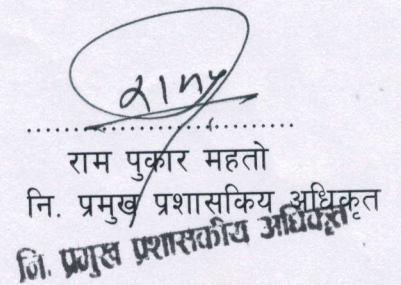 राम पुकार महतो
नि. प्रमुख प्रशासकिय अधिकृत
नि. प्रमुख प्रशासकीय अधिकृत